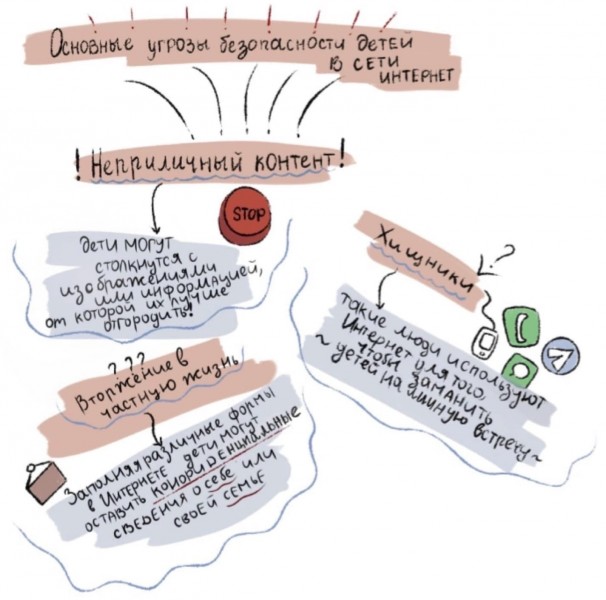 Основные угрозы безопасности детей
в сети
интернет
! Неприличный контент!
STOP
дети могут
столкнутся с
изображениями
или информацией,
от которой их лучше
отгородить!
Хищники
?
такие люди используют
Интернет для того,
чтобы заманить
~ детей на личную встречу ~
? ? ?
Вторжение в
частную жизнь
Заполняя различные формы
в Интернете дети могут
оставить конфиденциальные
сведения о себе или
своей семье